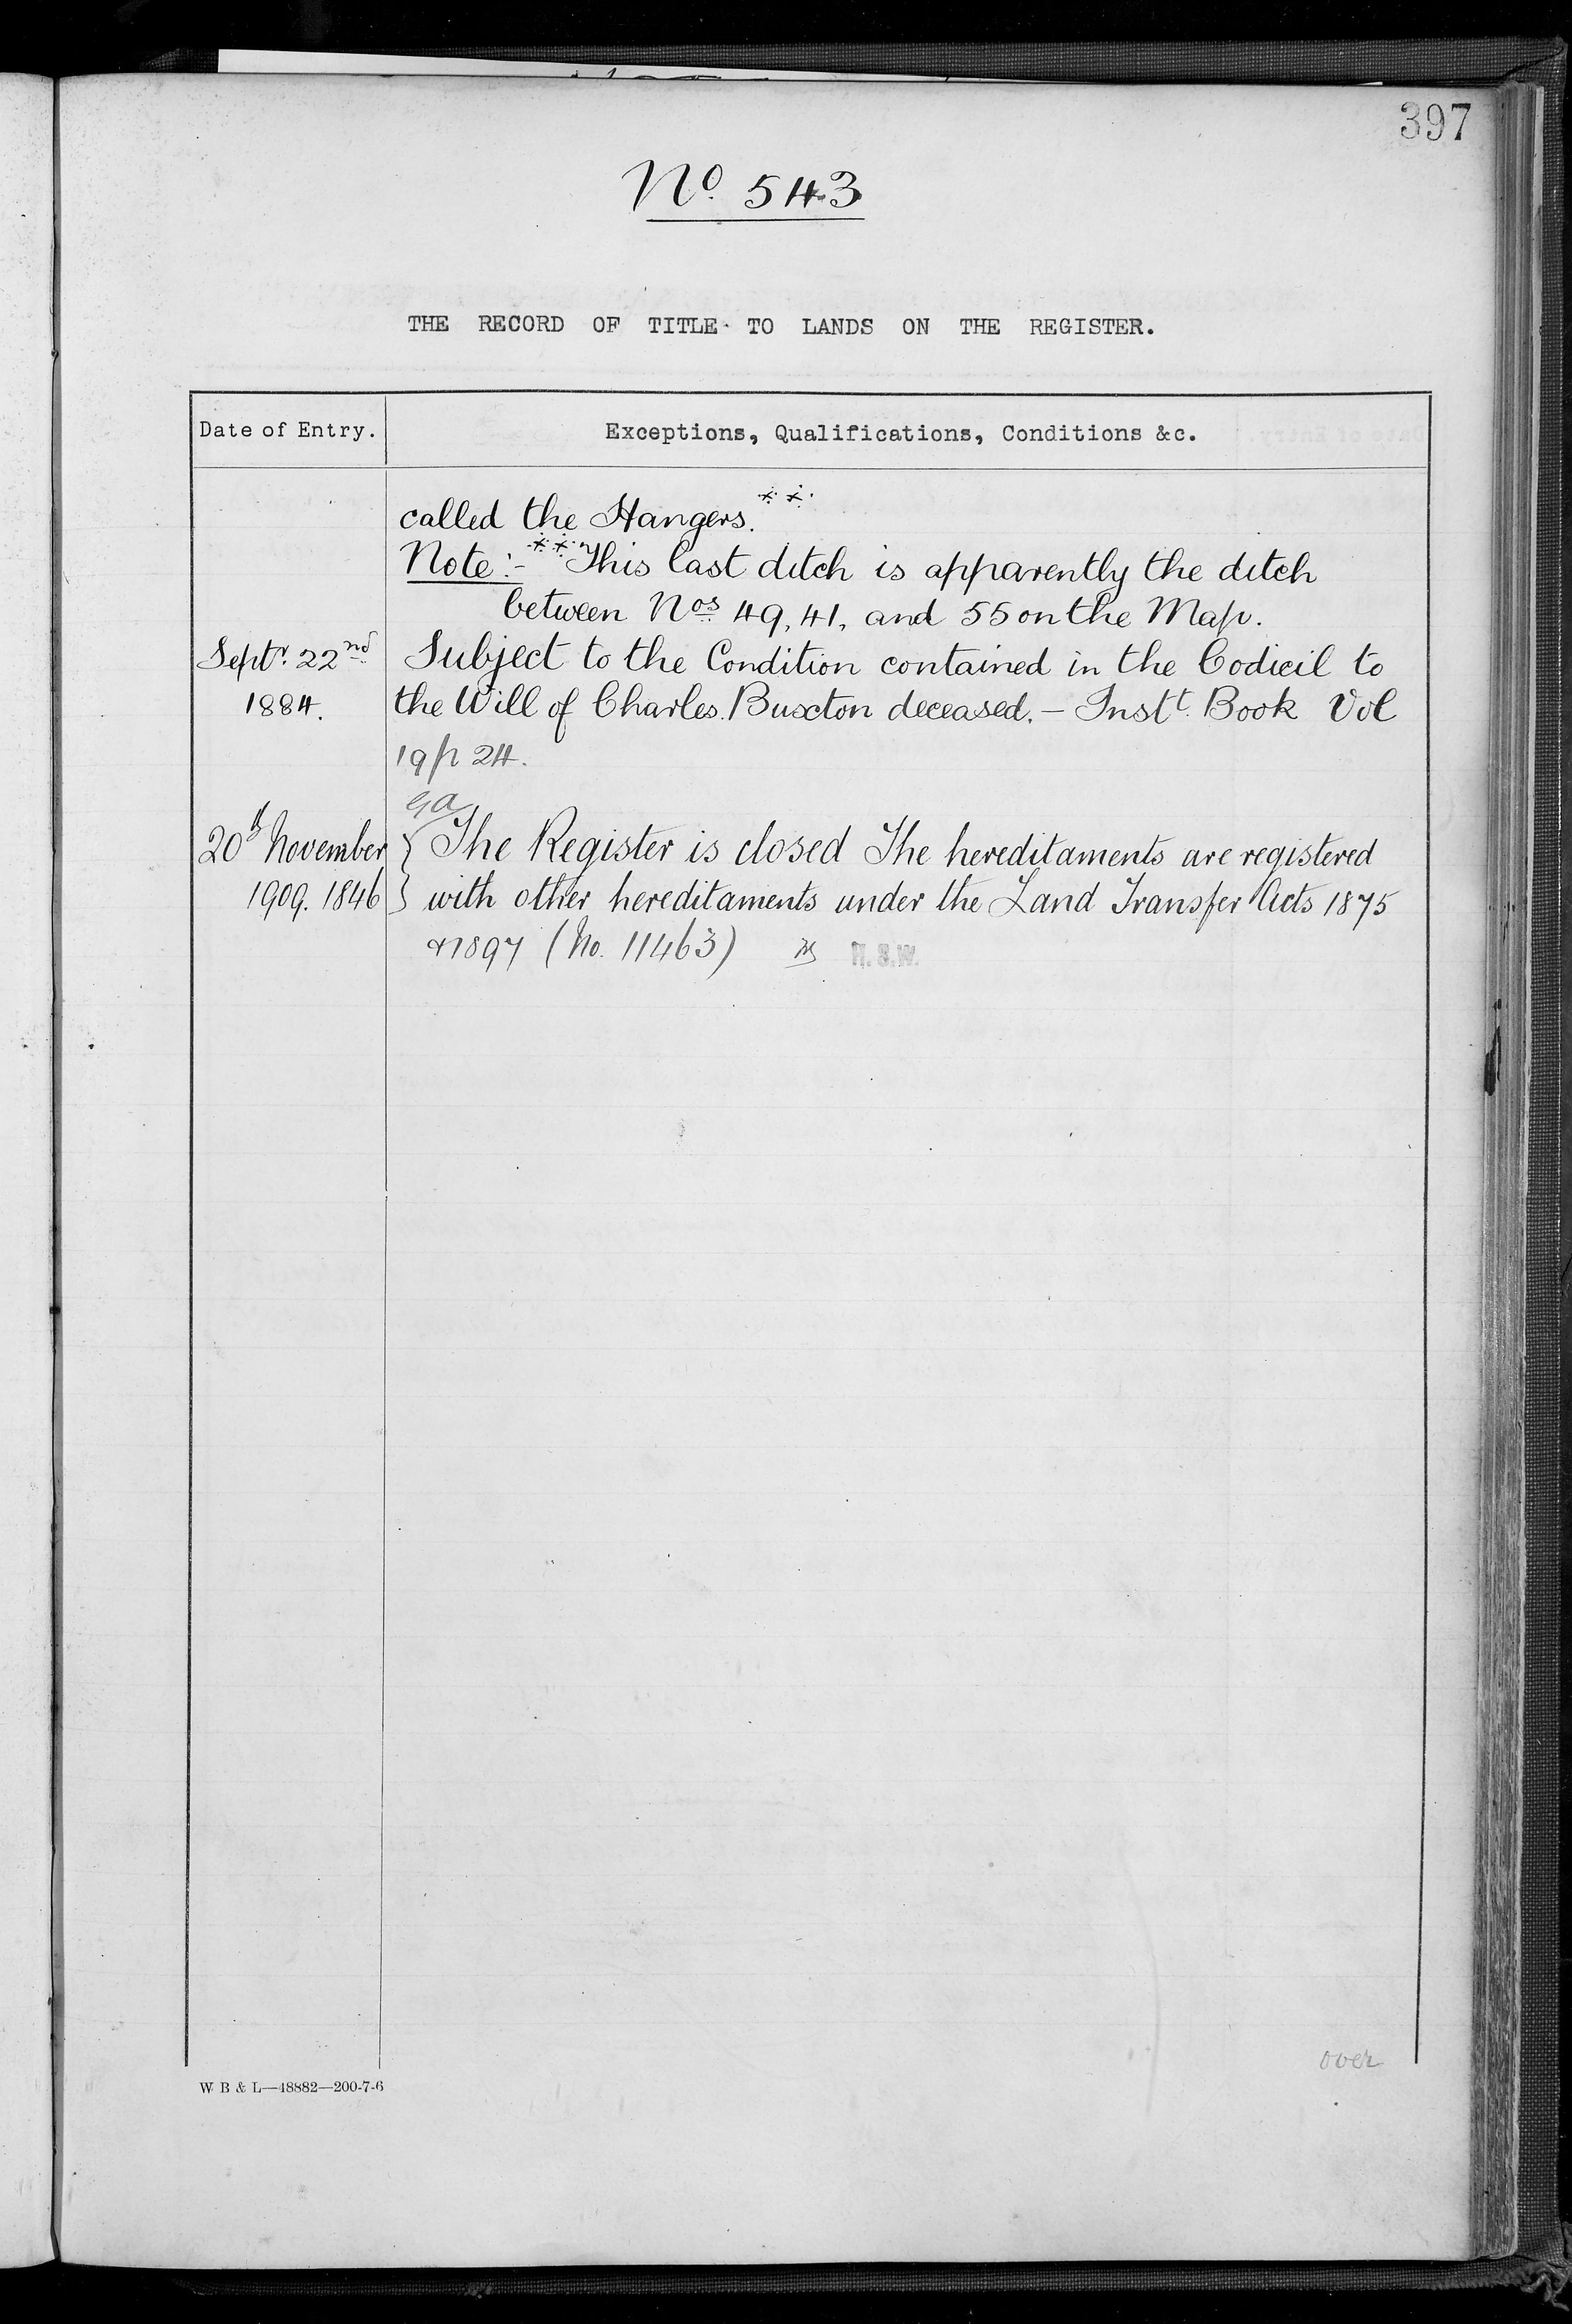 397
No. 543
THE RECORD OF TITLE TO LANDS ON THE REGISTER.
Date of Entry.
Exceptions, Qualifications, Conditions &c.
called the Hangers.**
Note:- **This last ditch is apparently the ditch
between Nos. 49, 41, and 55 on the Map.
Septr. 22nd Subject to the Condition contained in the Codicil to
1884. the Will of Charles Buxton deceased. - Instt. Book Vol
19 p 24.
20th November The Register is closed The hereditaments are registered
1909. 1846 with other hereditaments under the Land Transfer Acts 1875
& 1897 (No. 11463)
over
W B & L—48882—200-7-6